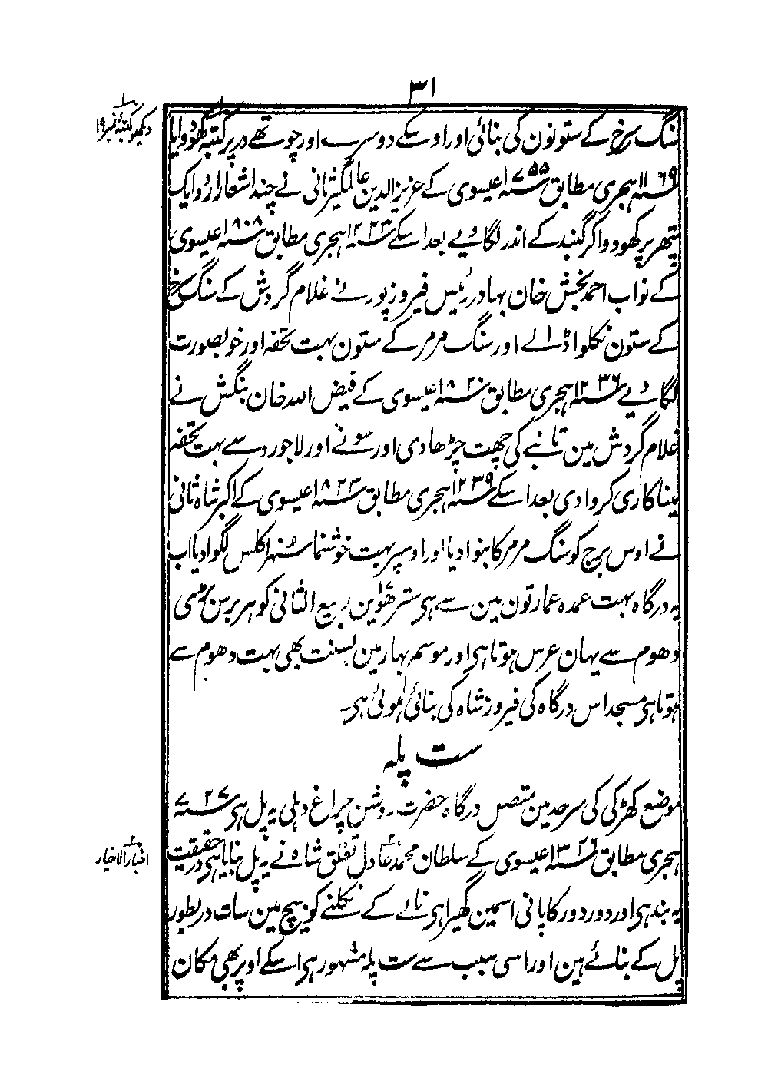 ۳۱
سنگ سرخ کے ستونون کی بنائی اور اوسکے دوسرے اور چوتھے در پر کتبہ کھودوایا
۱۱۶۹ سنہ ہجری مطابق ۱۷۵۵ سنہ عیسوی کے عزیز الدین عالمگیر ثانی نے چند اشعار اردو ایک
پتھر پر کھودوا کر گنبد کے اندر لگا دیے بعد اسکے ۱۲۲۳ سنہ ہجری مطابق ۱۸۰۸ سنہ عیسوی
کے نواب احمد بخش خان بہادر رئیس فیروزپور نے غلام گردش کے سنگ سرخ
کے ستون نکلوا ڈالے اور سنگ مرمر کے ستون بہت تحفہ اور خوبصورت
لگا دیے ۱۲۳۶ سنہ ہجری مطابق ۱۸۲۰ سنہ عیسوی کے فیض اللہ خان بنگش نے
غلام گردش مین تانبے کی چھت چڑھا دی اور سونے اور لاجورد سے بہت تحفہ
میناکاری کروا دی بعد اسکے ۱۲۳۹ سنہ ہجری مطابق ۱۸۲۳ سنہ عیسوی کے اکبر شاہ ثانی
نے اوس برج کو سنگ مرمر کا بنوا دیا اور اوسپر بہت خوشنما سنہرا کلس لگوا دیا اب
یہ درگاہ بہت عمدہ عمارتون مین سے ہی سترھوین ربیع الثانی کو ہر برس بڑی
دھوم سے یہان عرس ہوتا ہی اور موسم بہار مین بسنت بھی بہت دھوم سے
ہوتا ہی مسجد اس درگاہ کی فیروز شاہ کی بنائی ہوئی ہی۔
ست پلہ
موضع کھڑکی کی سرحد مین متصل درگاہ حضرت روشن چراغ دہلی یہ پل ہی ۷۲۷ سنہ
ہجری مطابق ۱۳۲۶ سنہ عیسوی کے سلطان محمد عادل تغلق شاہ نے یہ پل بنایا ہی درحقیقت
یہ بند ہی اور دور دور کا پانی اسمین گھیرا ہی نالے کے نکلنے کو بیچ مین سات در بطور
پل کے بنائے ہین اور اسی سبب سے ست پلہ مشہور ہی اسکے اوپر بھی مکان
دیکھو کتبہ نمبر ۱۹
اخبار الاخیار